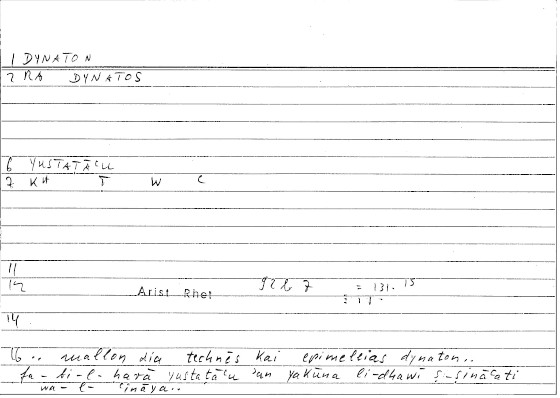 1 DYNATON
2 RA DYNATOS
6 YUSTATĀʿU
7 KH T W ʿ
11
12 Arist Rhet 92 b 7 = 131. 15
14
16 .. mallon dia technēs kai epimeleias dynaton..
fa-bi-l-ḥarā yustaṭāʿu ʾan yakūna li-dhawī ṣ-ṣināʿati
wa-l-ʿināya..